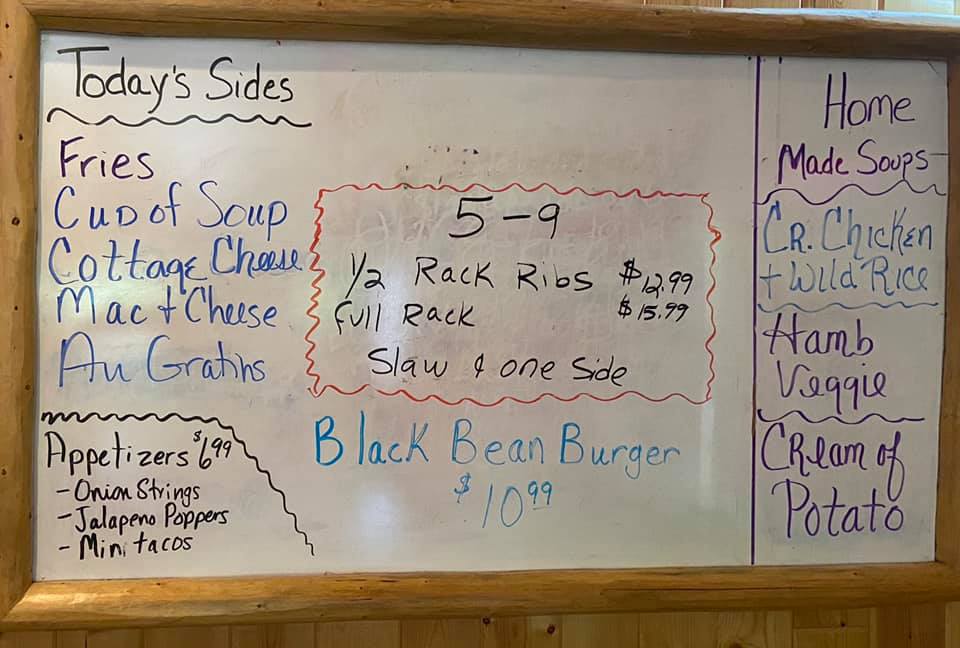 Today's Sides
Fries
Cup of Soup
Cottage Cheese
Mac + Cheese
Au Gratins
Appetizers $6.99
- Onion Strings
- Jalapeno Poppers
- Mini tacos
5-9
1/2 Rack Ribs $12.99
Full Rack $15.99
Slaw & one Side
Black Bean Burger
$10.99
Home
Made Soups
CR. Chicken
+ Wild Rice
Hamb
Veggie
Cream of
Potato